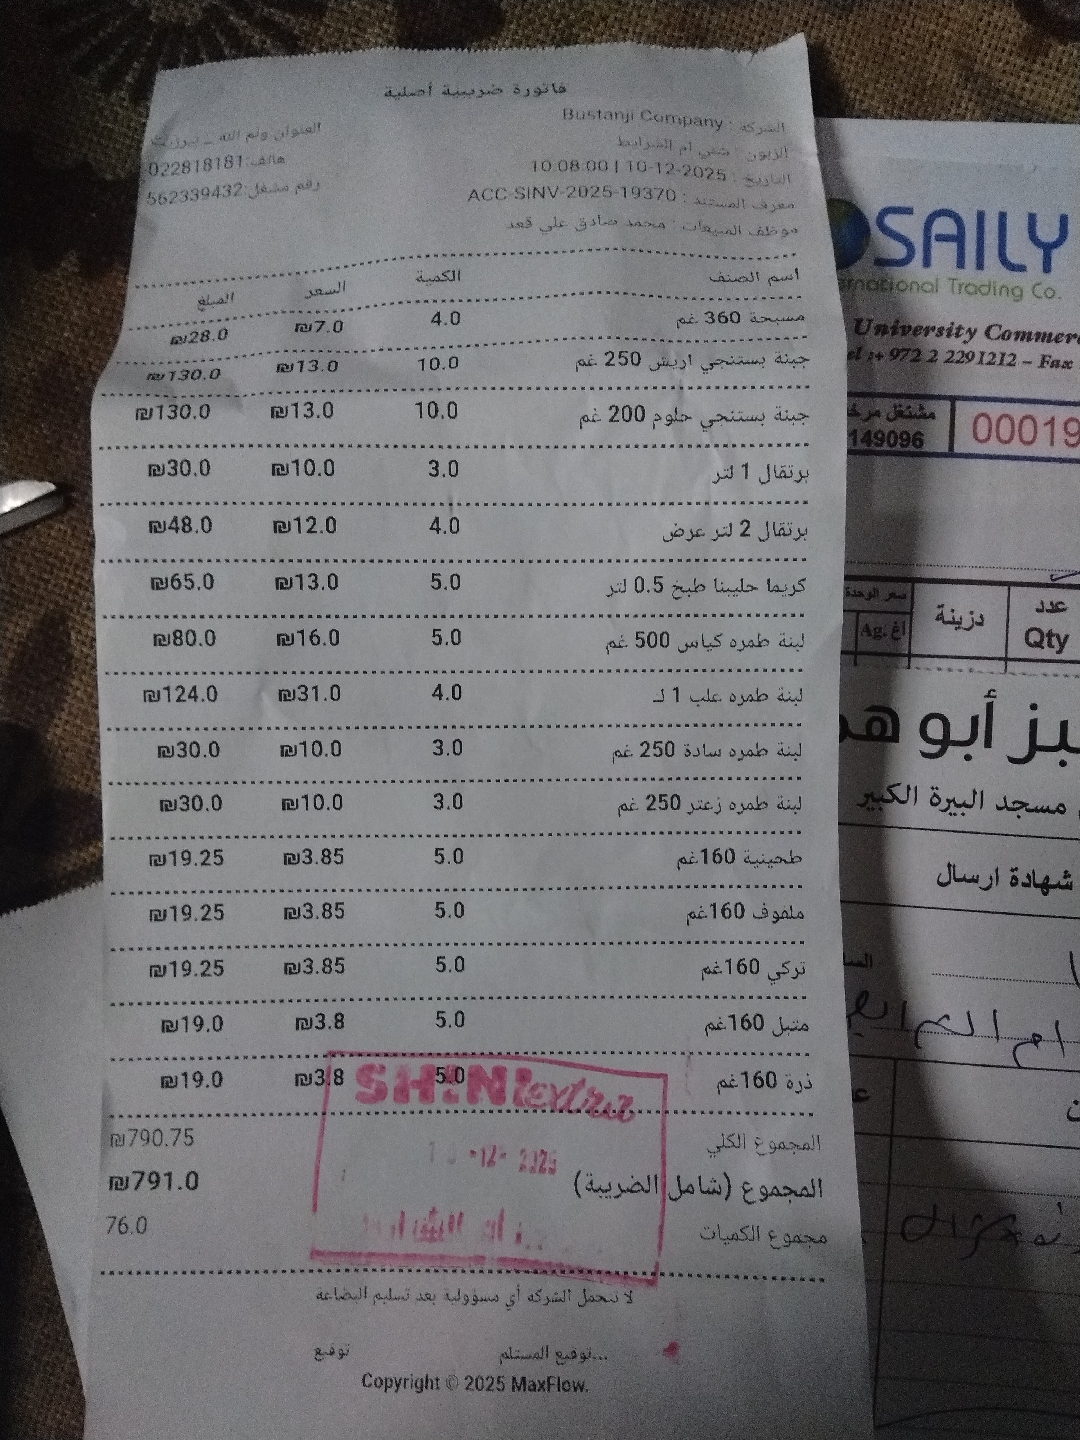 فاتورة ضريبية أصلية
الشركة : Bustanji Company
العنوان:رام الله _ بيرزيت
الزبون : شني ام الشرايط
هاتف:022818181
التاريخ : 10-12-2025 | 10:08:00
رقم مشغل:562339432
معرف المستند : ACC-SINV-2025-19370
موظف المبيعات : محمد صادق علي قعد
اسم الصنف الكمية السعر المبلغ
مسبحة 360 غم 4.0 ₪7.0 ₪28.0
جبنة بستنجي اريش 250 غم 10.0 ₪13.0 ₪130.0
جبنة بستنجي حلوم 200 غم 10.0 ₪13.0 ₪130.0
برتقال 1 لتر 3.0 ₪10.0 ₪30.0
برتقال 2 لتر عرض 4.0 ₪12.0 ₪48.0
كريما حليبنا طبخ 0.5 لتر 5.0 ₪13.0 ₪65.0
لبنة طمره كياس 500 غم 5.0 ₪16.0 ₪80.0
لبنة طمره علب 1 لـ 4.0 ₪31.0 ₪124.0
لبنة طمره سادة 250 غم 3.0 ₪10.0 ₪30.0
لبنة طمره زعتر 250 غم 3.0 ₪10.0 ₪30.0
طحينية 160غم 5.0 ₪3.85 ₪19.25
ملفوف 160غم 5.0 ₪3.85 ₪19.25
تركي 160غم 5.0 ₪3.85 ₪19.25
متبل 160غم 5.0 ₪3.8 ₪19.0
ذرة 160غم 5.0 ₪3.8 ₪19.0
المجموع الكلي ₪790.75
المجموع (شامل الضريبة) ₪791.0
مجموع الكميات 76.0
SHINI extra
-12- 2025
لا تتحمل الشركه أي مسؤولية بعد تسليم البضاعة
توقيع المستلم... توقيع
Copyright © 2025 MaxFlow.
SAILY
International Trading Co.
University
972 2 2291212 – Fax
مشتغل مرخ
149096
00019
عدد
Qty
دزينة
سعر الوحدة
أغ. Ag.
بز أبو هم
مسجد البيرة الكبير
شهادة ارسال